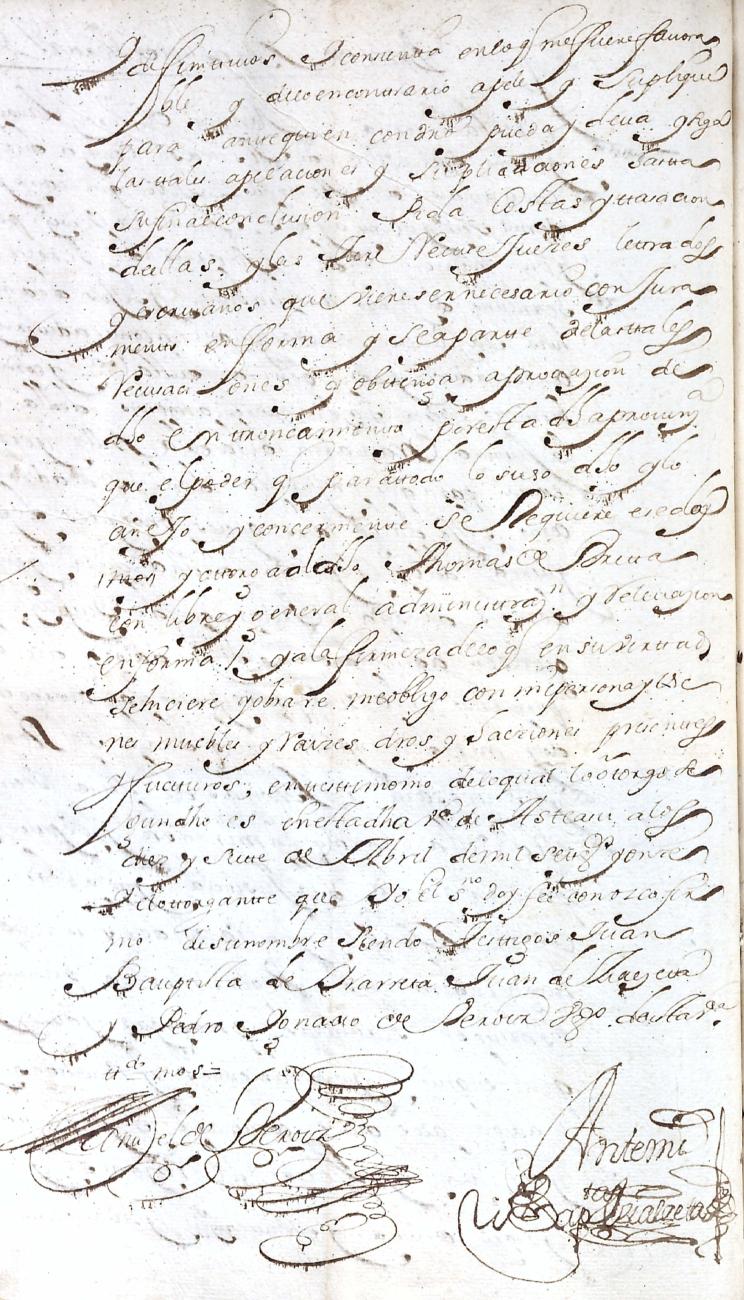 Y difinitivos Y consienta en lo q me fuere favora
ble y de lo en contrario apele y suplique
para ante quien con dro pueda y deva y siga
las tales apelaciones y suplicaciones hasta
su final conclusion Pida Costas y tasacion
dellas, y las Jure Recuse Jueces letrados
y escrivanos que viere ser necesario con Jura
mento en forma y se aparte de las tales
Recusaciones y obtenga aprovazion de
dho entroncamiento por esta dha provinª
que el poder q para todo lo suso dho y lo
anejo y concerniente se Requiere ese doy
y otorgo a dho Thomas de
con libre y general administrazn y Relevazion
en forma. Y a la firmeza de lo q en su virtud
se hiciere y obrare me obligo con mi persona y vie
nes muebles y raizes dros y acciones presentes
y futuros, en testimonio de lo qual lo otorgo
es en esta dha vª de Asteasu a los
diez y siete de Abril de mil setezs y onze
Y el otorgante que Yo el sno doy fee conozco fir
mo de su nombre siendo Testigos Juan
Bauptista de Juan de
y Pedro Ignacio de Veroiz vzos desta dha vª
mos=
Manuel de Veroiz
Ante mi
Bapta